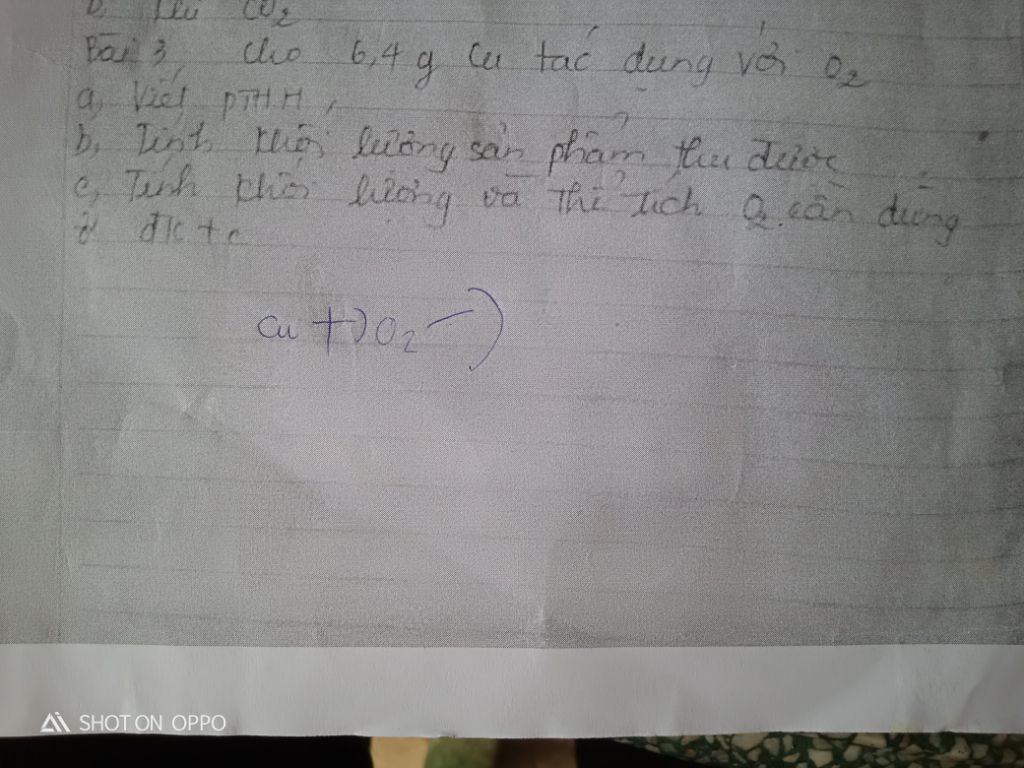 b, Khí CO2
Bài 3, cho 6,4 g Cu tác dụng với O2
a, Viết PTHH
b, Tính khối lượng sản phẩm thu được
c, Tính khối lượng và thể tích O2 cần dùng
ở đktc
Cu + O2 →
SHOT ON OPPO